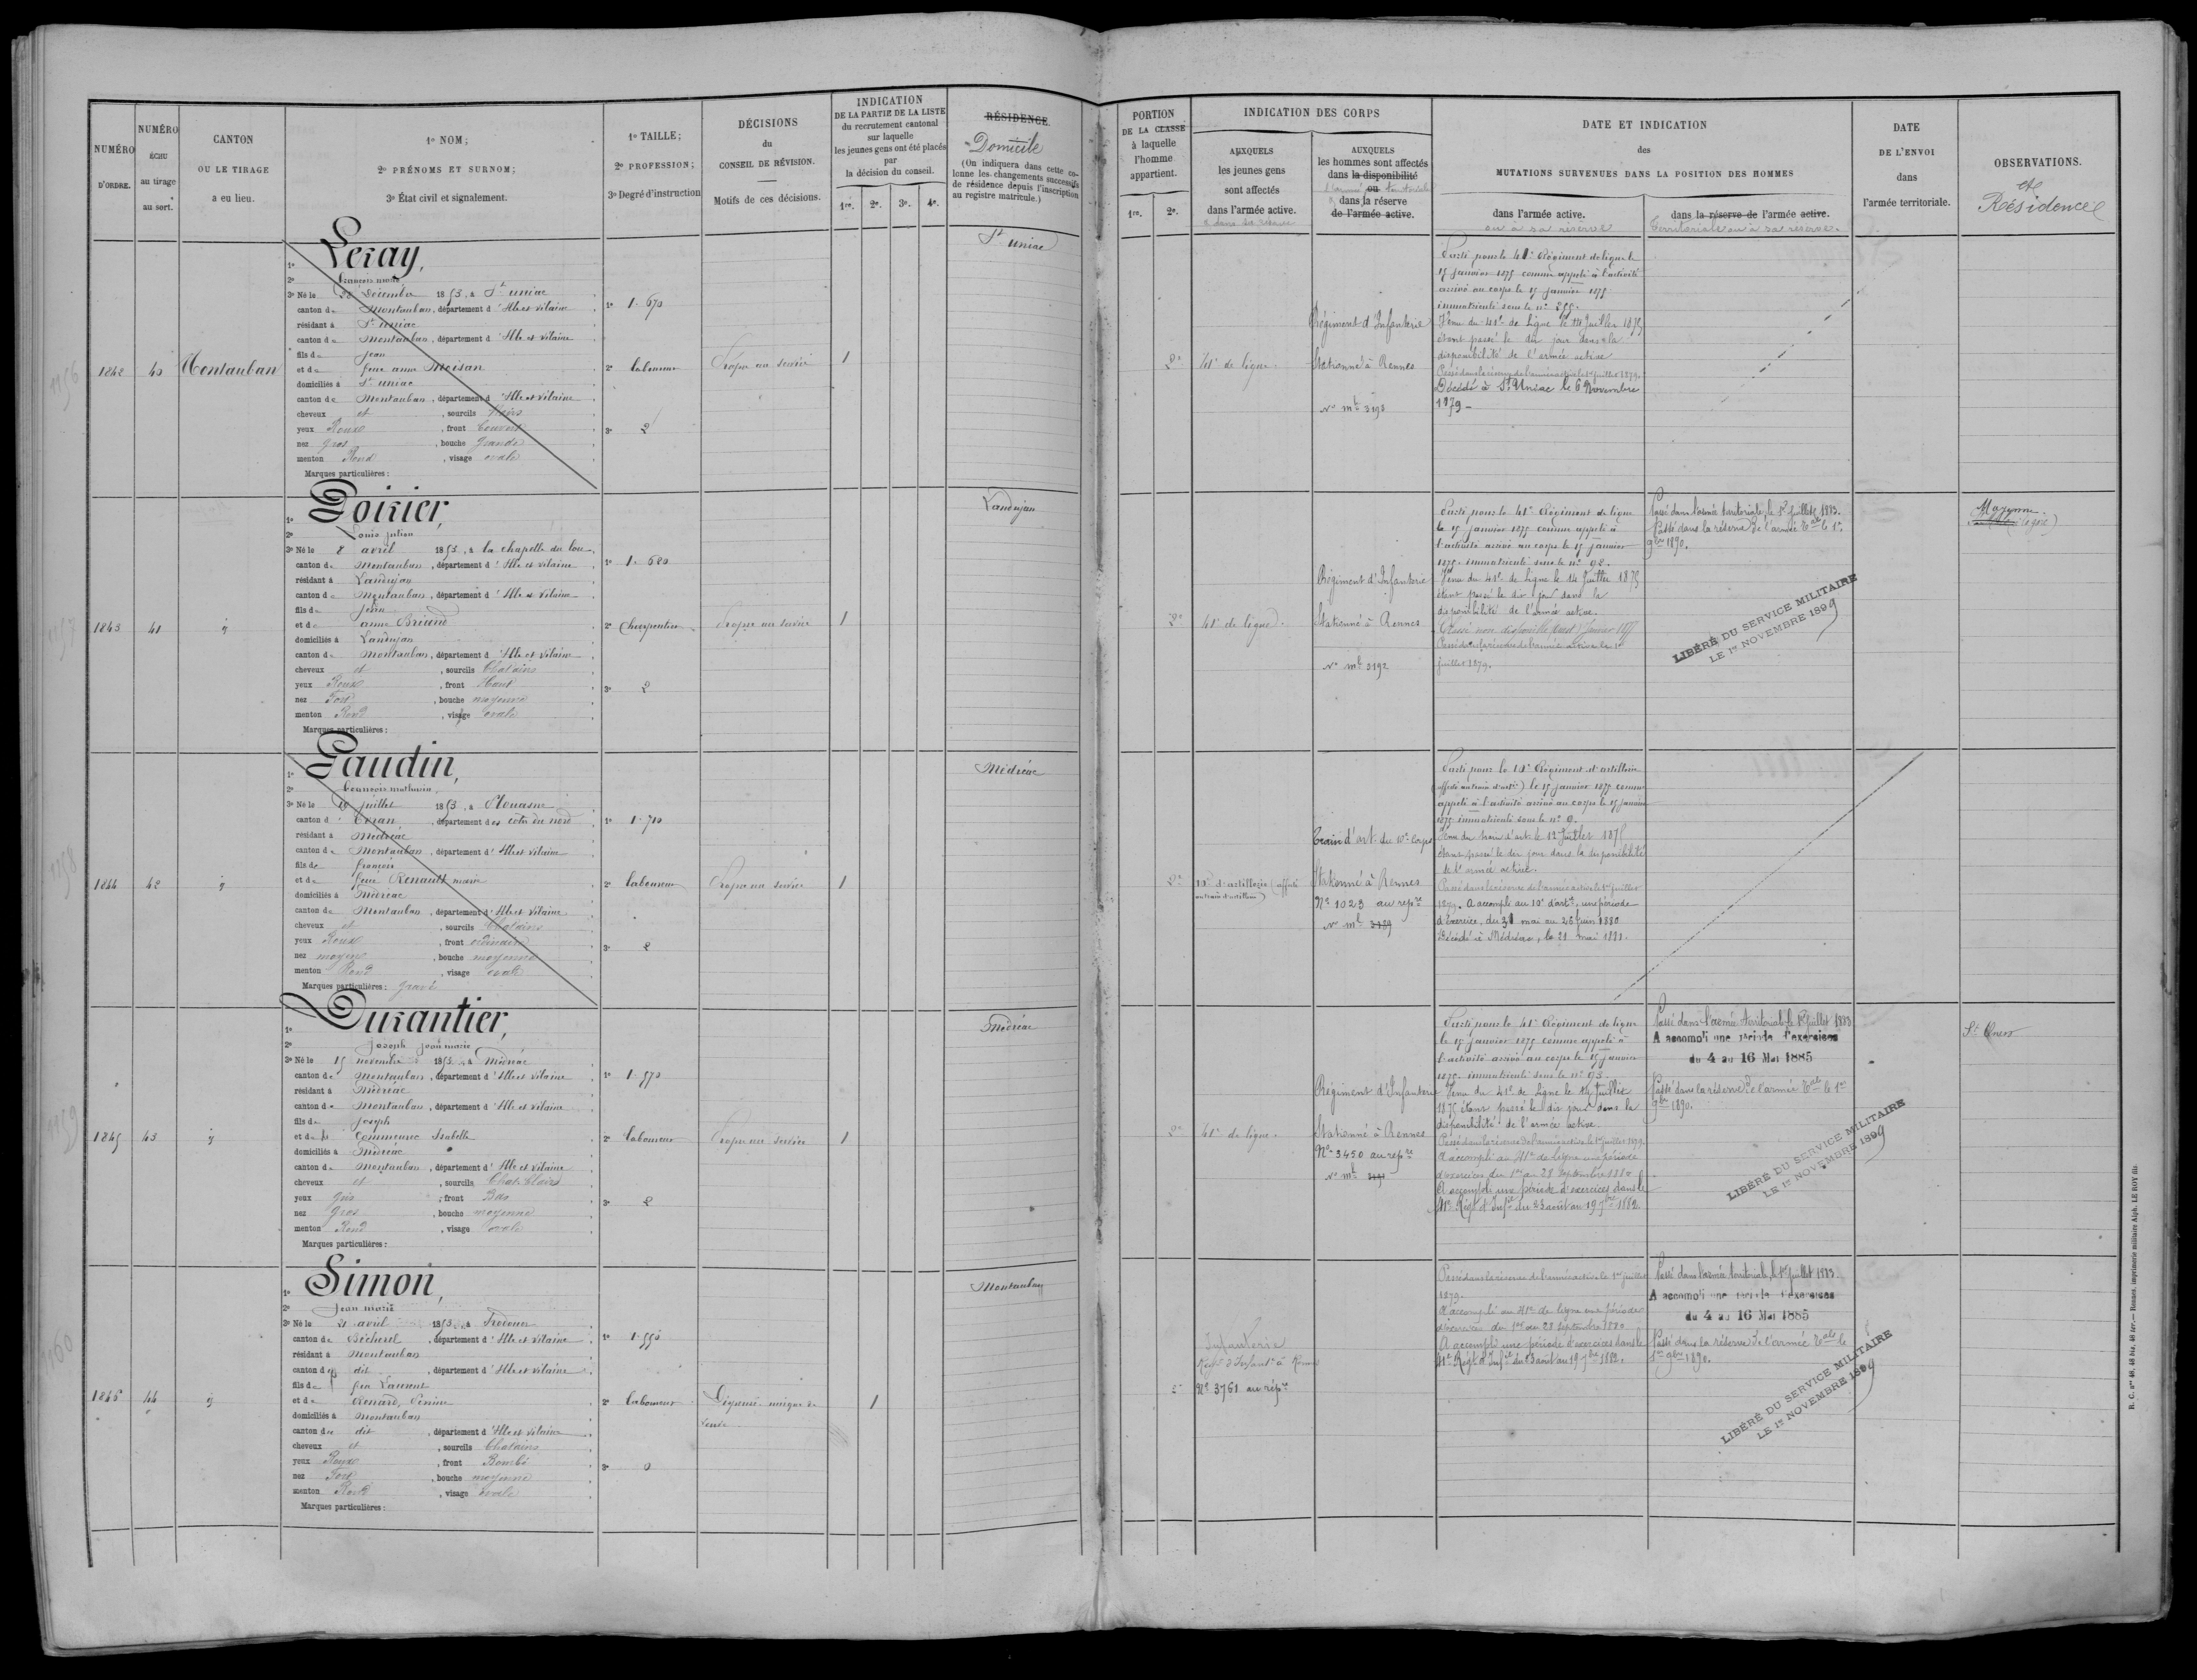 NUMÉRO
D'ORDRE.
NUMÉRO
ÉCHU
au tirage
au sort.
CANTON
OU LE TIRAGE
a eu lieu.
1º NOM;
2º PRÉNOMS ET SURNOM;
3º État civil et signalement.
1º TAILLE;
2º PROFESSION;
3º Degré d'instruction
DÉCISIONS
du
CONSEIL DE RÉVISION.
Motifs de ces décisions.
INDICATION
DE LA PARTIE DE LA LISTE
du recrutement cantonal
sur laquelle
les jeunes gens ont été placés
par
la décision du conseil.
1re. 2e. 3e. 4e.
RÉSIDENCE
Domicile
(On indiquera dans cette co-
lonne les changements successifs
de résidence depuis l'inscription
au registre matricule.)
PORTION
DE LA CLASSE
à laquelle
l'homme
appartient.
1re. 2e.
INDICATION DES CORPS
AUXQUELS
les jeunes gens
sont affectés
dans l'armée active.
AUXQUELS
les hommes sont affectés
dans la disponibilité
ou
dans la réserve
de l'armée active.
DATE ET INDICATION
des
MUTATIONS SURVENUES DANS LA POSITION DES HOMMES
dans l'armée active.
ou à sa réserve
dans la réserve de l'armée active.
Territoriale ou à sa réserve.
DATE
DE L'ENVOI
dans
l'armée territoriale.
OBSERVATIONS.
et
Résidence
1842 40 Montauban
1º Leray,
2º François marie
3º Né le 28 décembre 1853, à St uniac
canton de Montauban, département d'Ille et Vilaine
résidant à St uniac
canton de Montauban, département d'Ille et Vilaine
fils de Jean
et de feue anne Moisan
domiciliés à St uniac
canton de Montauban, département d'Ille et Vilaine
cheveux et, sourcils Noirs
yeux Roux, front Couvert
nez gros, bouche grande
menton Rond, visage ovale
Marques particulières:
1º 1.670
2º laboureur
3º 2
Propre au service
1
St uniac
2e
41e de ligne
Régiment d'Infanterie
Stationné à Rennes
No mle 3193
Parti pour le 41e Régiment de ligne le
15 janvier 1875 comme appelé à l'activité
arrivé au corps le 15 janvier 1875
immatriculé sous le nº 255.
Venu du 41e de Ligne le 14 Juillet 1875
étant passé le dit jour dans la
disponibilité de l'armée active
Passé dans la réserve de l'armée active le 1er juillet 1879.
Décédé à St Uniac le 6 Novembre
1879 -
1843 41 id
1º Poirier,
2º Louis julien
3º Né le 8 avril 1853, à la chapelle du lou
canton de Montauban, département d'Ille et Vilaine
résidant à Landujan
canton de Montauban, département d'Ille et Vilaine
fils de Jean
et de anne Briand
domiciliés à Landujan
canton de Montauban, département d'Ille et Vilaine
cheveux et, sourcils Chatains
yeux Roux, front Haut
nez Fort, bouche moyenne
menton Rond, visage ovale
Marques particulières:
1º 1.680
2º Charpentier
3º 2
Propre au service
1
Landujan
2e
41e de ligne
Régiment d'Infanterie
Stationné à Rennes
No mle 3192
Parti pour le 41e Régiment de ligne
le 15 janvier 1875 comme appelé à
l'activité arrivé au corps le 15 janvier
1875 immatriculé sous le nº 92.
Venu du 41e de Ligne le 14 Juillet 1875
étant passé le dit jour dans la
disponibilité de l'armée active.
Passé dans la réserve de l'armée active le 1er
juillet 1879.
Passé dans l'armée territoriale, le 1er Juillet 1883.
Passé dans la réserve de l'armée Tale le 1er
9bre 1890.
LIBÉRÉ DU SERVICE MILITAIRE
LE 1er NOVEMBRE 1899
Mayenne
1844 42 id
1º Gaudin,
2º François mathurin
3º Né le 19 juillet 1853, à Plouasne
canton d'Evran, département des côtes du nord
résidant à Médréac
canton de Montauban, département d'Ille et Vilaine
fils de François
et de feue Renault marie
domiciliés à Médréac
canton de Montauban, département d'Ille et Vilaine
cheveux et, sourcils Chatains
yeux Roux, front ordinaire
nez moyen, bouche moyenne
menton Rond, visage ovale
Marques particulières: gravé
1º 1.710
2º laboureur
3º 2
Propre au service
1
Médréac
2e
Train d'art. du 10e Corps
Stationné à Rennes
Nº 1023 au repre
No mle 3189
appelé à l'activité arrivé au corps le 15 janvier
1875 immatriculé sous le nº 9.
Venu du train d'art. le 12 Juillet 1875
étant passé le dit jour dans la disponibilité
de l'armée active.
Passé dans la réserve de l'armée active le 1er juillet
1879. A accompli au 10e d'artie, une période
d'exercice, du 31 mai au 26 juin 1880.
Décédé à Médréac, le 21 mai 1881.
1845 43 id
1º Durantier,
2º joseph jean marie
3º Né le 15 novembre 1853, à Médréac
canton de Montauban, département d'Ille et Vilaine
résidant à Médréac
canton de Montauban, département d'Ille et Vilaine
fils de Joseph
et de Commeurec Isabelle
domiciliés à Médréac
canton de Montauban, département d'Ille et Vilaine
cheveux et, sourcils Chat. clairs
yeux gris, front Bas
nez gros, bouche moyenne
menton Rond, visage ovale
Marques particulières:
1º 1.570
2º laboureur
3º 2
Propre au service
1
Médréac
2e
41e de ligne
Régiment d'Infanterie
Stationné à Rennes
Nº 3450 au repre
No mle
Parti pour le 41e Régiment de ligne
le 15 janvier 1875 comme appelé à
l'activité arrivé au corps le 15 janvier
1875 immatriculé sous le nº 93.
Venu du 41e de Ligne le 14 Juillet
1875 étant passé le dit jour dans la
disponibilité de l'armée active.
Passé dans la réserve de l'armée active le 1er juillet 1879.
A accompli au 41e de Ligne une période
d'exercices du 1er au 28 septembre 1880
A accompli une période d'exercices dans le
41e Régt d'Infie du 23 août au 19 7bre 1882.
Passé dans l'armée territoriale le 1er Juillet 1883
A accompli une période d'exercices
du 4 au 16 Mai 1885
Passé dans la réserve de l'armée Tale le 1er
9bre 1890.
LIBÉRÉ DU SERVICE MILITAIRE
LE 1er NOVEMBRE 1899
1846 44 id
1º Simon,
2º Jean marie
3º Né le 21 avril 1853, à Irodouer
canton de Bécherel, département d'Ille et Vilaine
résidant à Montauban
canton de dit, département d'Ille et Vilaine
fils de feu Laurent
et de Renard, Perrine
domiciliés à Montauban
canton de dit, département d'Ille et Vilaine
cheveux et, sourcils Chatains
yeux Roux, front Bombé
nez Fort, bouche moyenne
menton Rond, visage ovale
Marques particulières:
1º 1.550
2º laboureur
3º 0
Dispensé unique de
veuve
1
Montauban
2e
Infanterie
Nº 3761 au repre
Passé dans la réserve de l'armée active le 1er juillet
1879.
A accompli au 41e de ligne une période
d'exercices du 1er au 28 septembre 1880
A accompli une période d'exercices dans le
41e Régt d'Infie du 23 août au 19 7bre 1882.
Passé dans l'armée territoriale, le 1er Juillet 1883.
A accompli une période d'exercices
du 4 au 16 Mai 1885
Passé dans la réserve de l'armée Tale le
1er 9bre 1890.
LIBÉRÉ DU SERVICE MILITAIRE
LE 1er NOVEMBRE 1899
R. C. nos 46, 46 bis, 46 ter. — Rennes, imprimerie militaire Alph. LE ROY fils